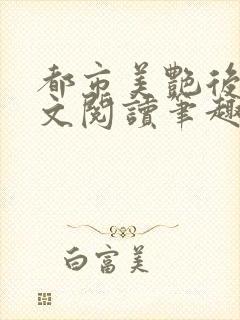 都市美艷後
文閱讀筆趣
白富美